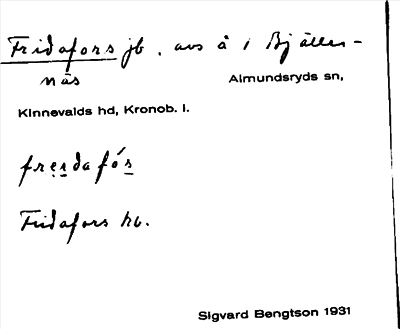 Fridafors jb. avs å i Bjällernäs
Almundsryds sn,
Kinnevalds hd, Kronob. l.
Fridafors hb.
Sigvard Bengtson 1931